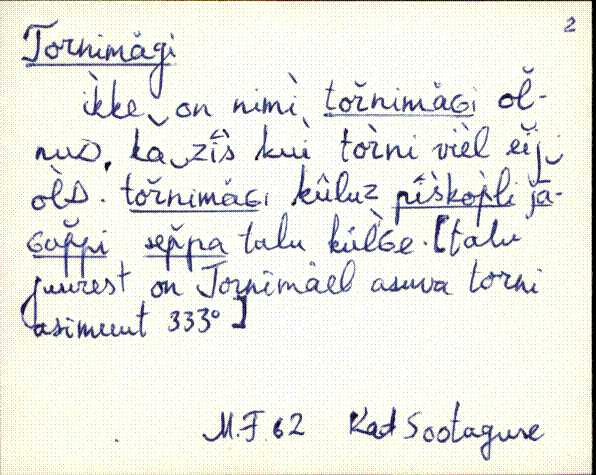 2
Tornimägi
ìkke‿on nimì torňimäɢi oľ-
nuᴅ, ka‿zîs kuì torni vièl eij‿
òlᴅ. torňimäɢi kûluz pîškopli ja-
ɢuppi seppa talu külɢe. [talu
juurest on Tornimäel asuva torni
asimuut 333° ]
M.F. 62 Kad Sootaguse